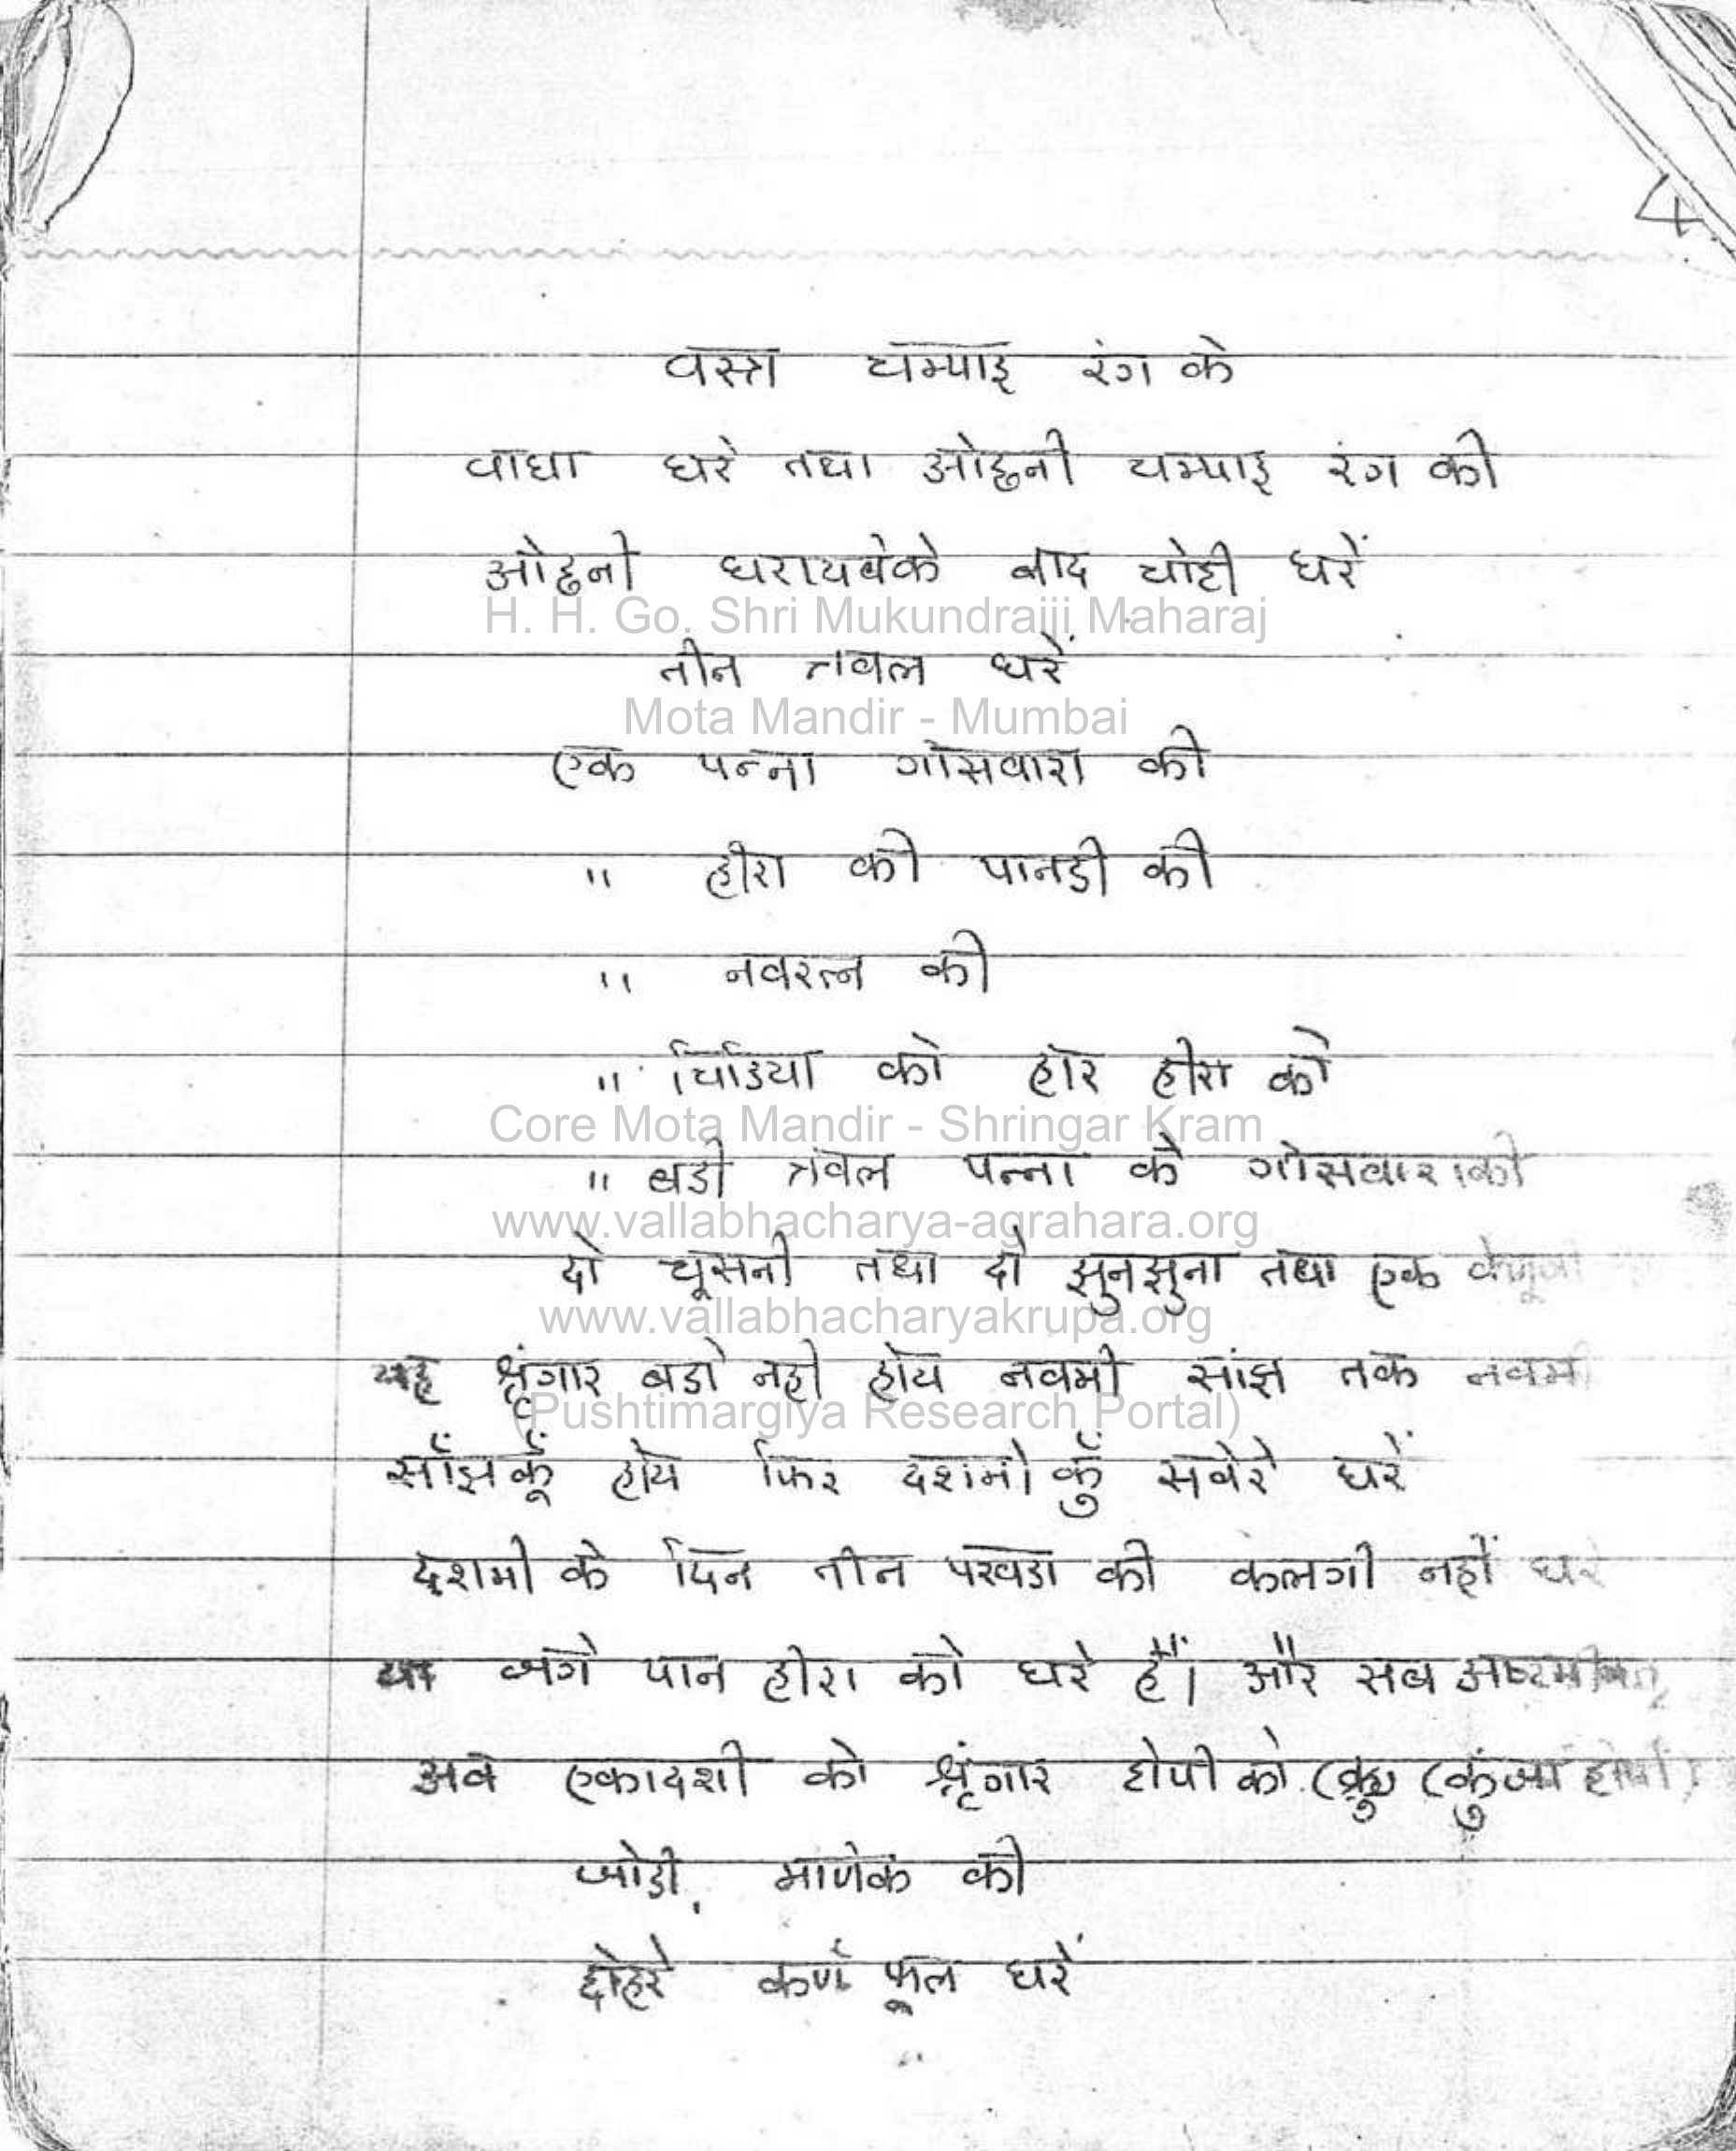 4
वस्त्र चम्पाइ रंग के
वाघा धरे तथा ओढनी चम्पाइ रंग की
ओढनी धरायवेके बाद चोटी धरें
H. H. Go. Shri Mukundraiji Maharaj
तीन त्रवल धरें
Mota Mandir - Mumbai
एक पन्ना गोसवारा की
" हीरा की पानडी की
" नवरत्न की
" चिडिया को हार हीरा को
Core Mota Mandir - Shringar Kram
" बडी त्रवल पन्ना के गोसवाराकी
www.vallabhacharya-agrahara.org
दो चूसनी तथा दो झुनझुना तथा एक
www.vallabhacharyakrupa.org
यह श्रृंगार बडो नही होय नवमी सांझ तक नवमी
(Pushtimargiya Research Portal)
साँझ कूँ होय फिर दशमी कुँ सवेरे धरें
दशमी के दिन तीन पखडा की कलगी नहीं धरे
जगे पान हीरा को धरे हैं। और सब
अब एकादशी को श्रृंगार टोपी को (कुंजा टोपी)
जोडी माणेक की
दोहरे कर्ण फूल धरें